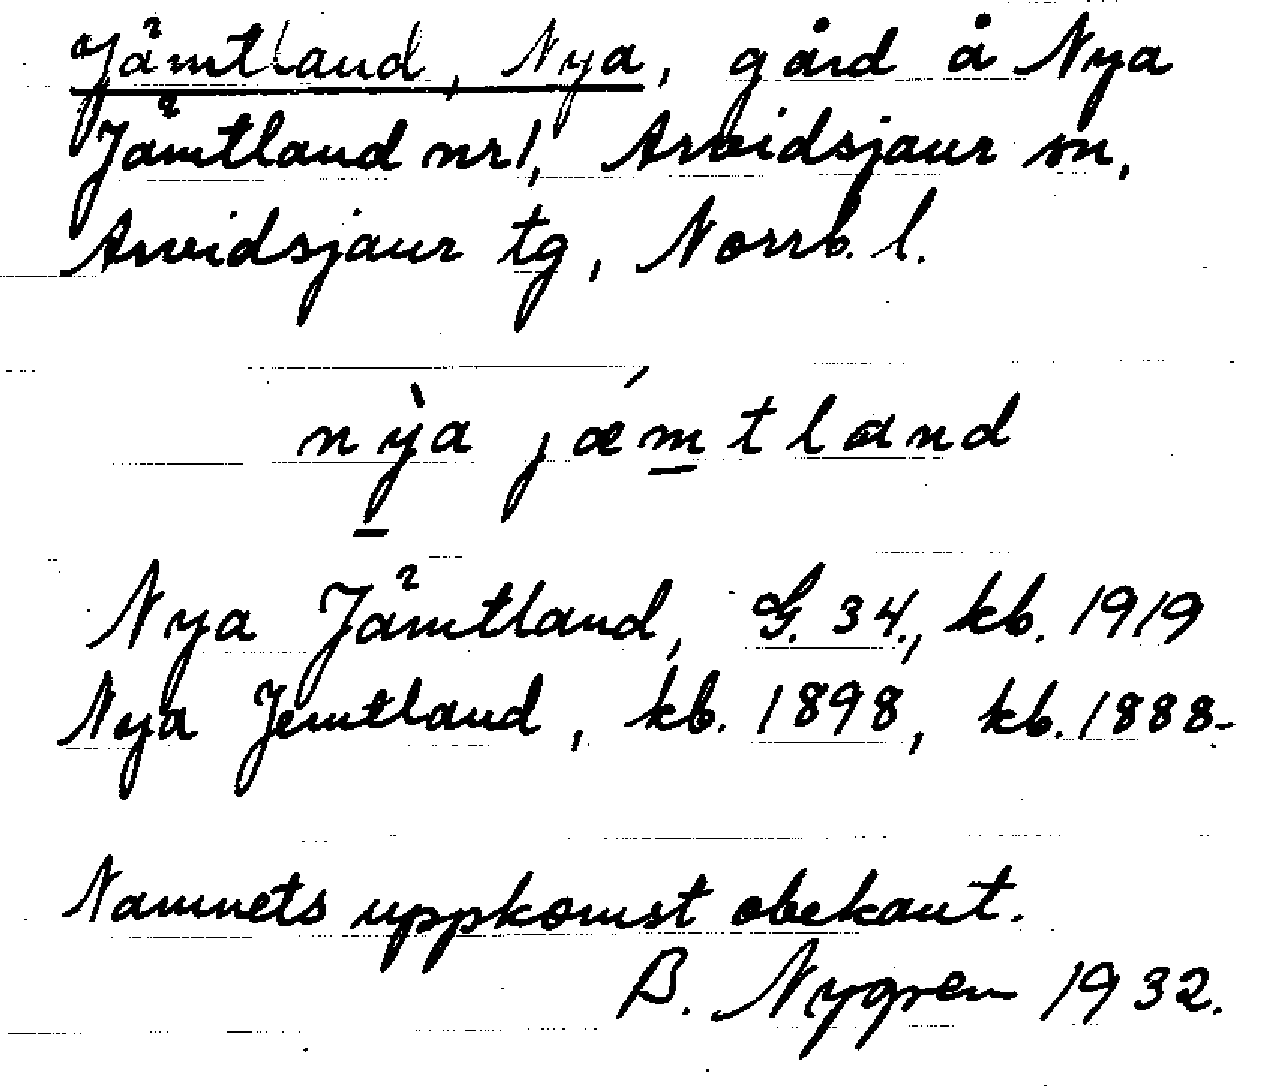 Jämtland, Nya, gård å Nya
Jämtland nr 1, Arvidsjaur sn,
Arvidsjaur tg, Norrb. l.
nỳa jǽmtland
Nya Jämtland, G. 34., kb. 1919
Nya Jemtland, kb. 1898, kb. 1888-
Namnets uppkomst obekant.
B. Nygren 1932.